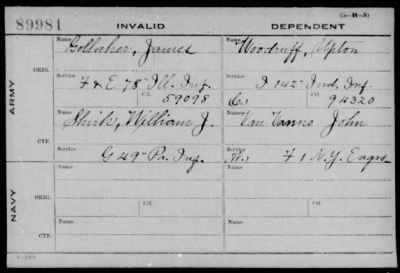 (3-H-3)
89981 INVALID DEPENDENT
ARMY
NAVY
ORIG.
Name Gollaher, James
Name Woodruff, Upton
Service F & E. 78" Ill. Inf.
Service I 142" Ind. Inf.
Ctf. 59098
(C.) 94320
CTF.
Name Shirk, William J.
Name Van Tanns John
Service G 49" Pa. Inf.
Service (W.) F 1 N.Y. Engrs
ORIG.
Name
Name
Service
Service
Ctf.
Ctf.
CTF.
Name
Name